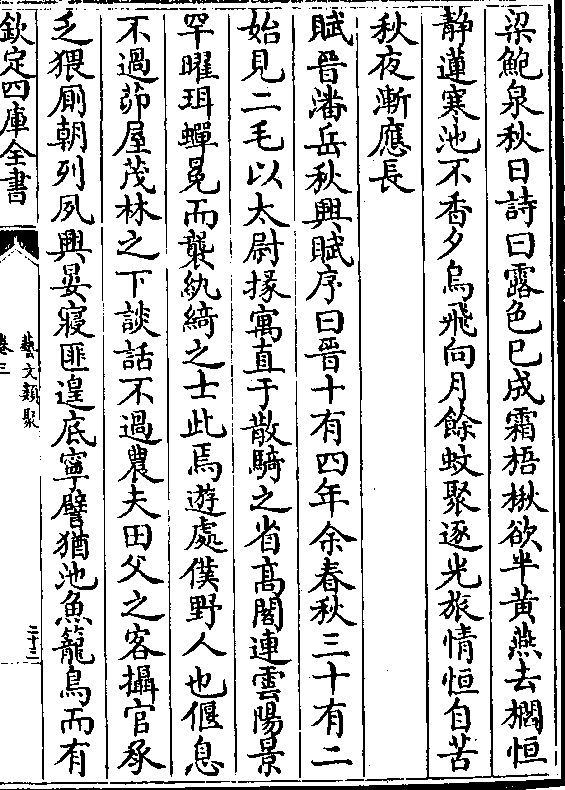 梁鮑泉秋日詩曰露色已成霜梧楸欲半黄燕去櫩恒
静蓮寒池不香夕烏飛向月餘蚊聚逐光旅情恒自苦
秋夜漸應長
賦晉潘岳秋興賦序曰晉十有四年余春秋三十有二
始見二毛以太尉掾寓直于散騎之省髙閣連雲陽景
罕曜珥蟬冕而襲紈綺之士此焉遊處僕野人也偃息
不過茆屋茂林之下談話不過農夫田父之客攝官承
乏猥厠朝列夙興晏寢匪遑底寧譬猶池魚籠鳥而有
欽定四庫全書
藝文類聚
卷三
二十三